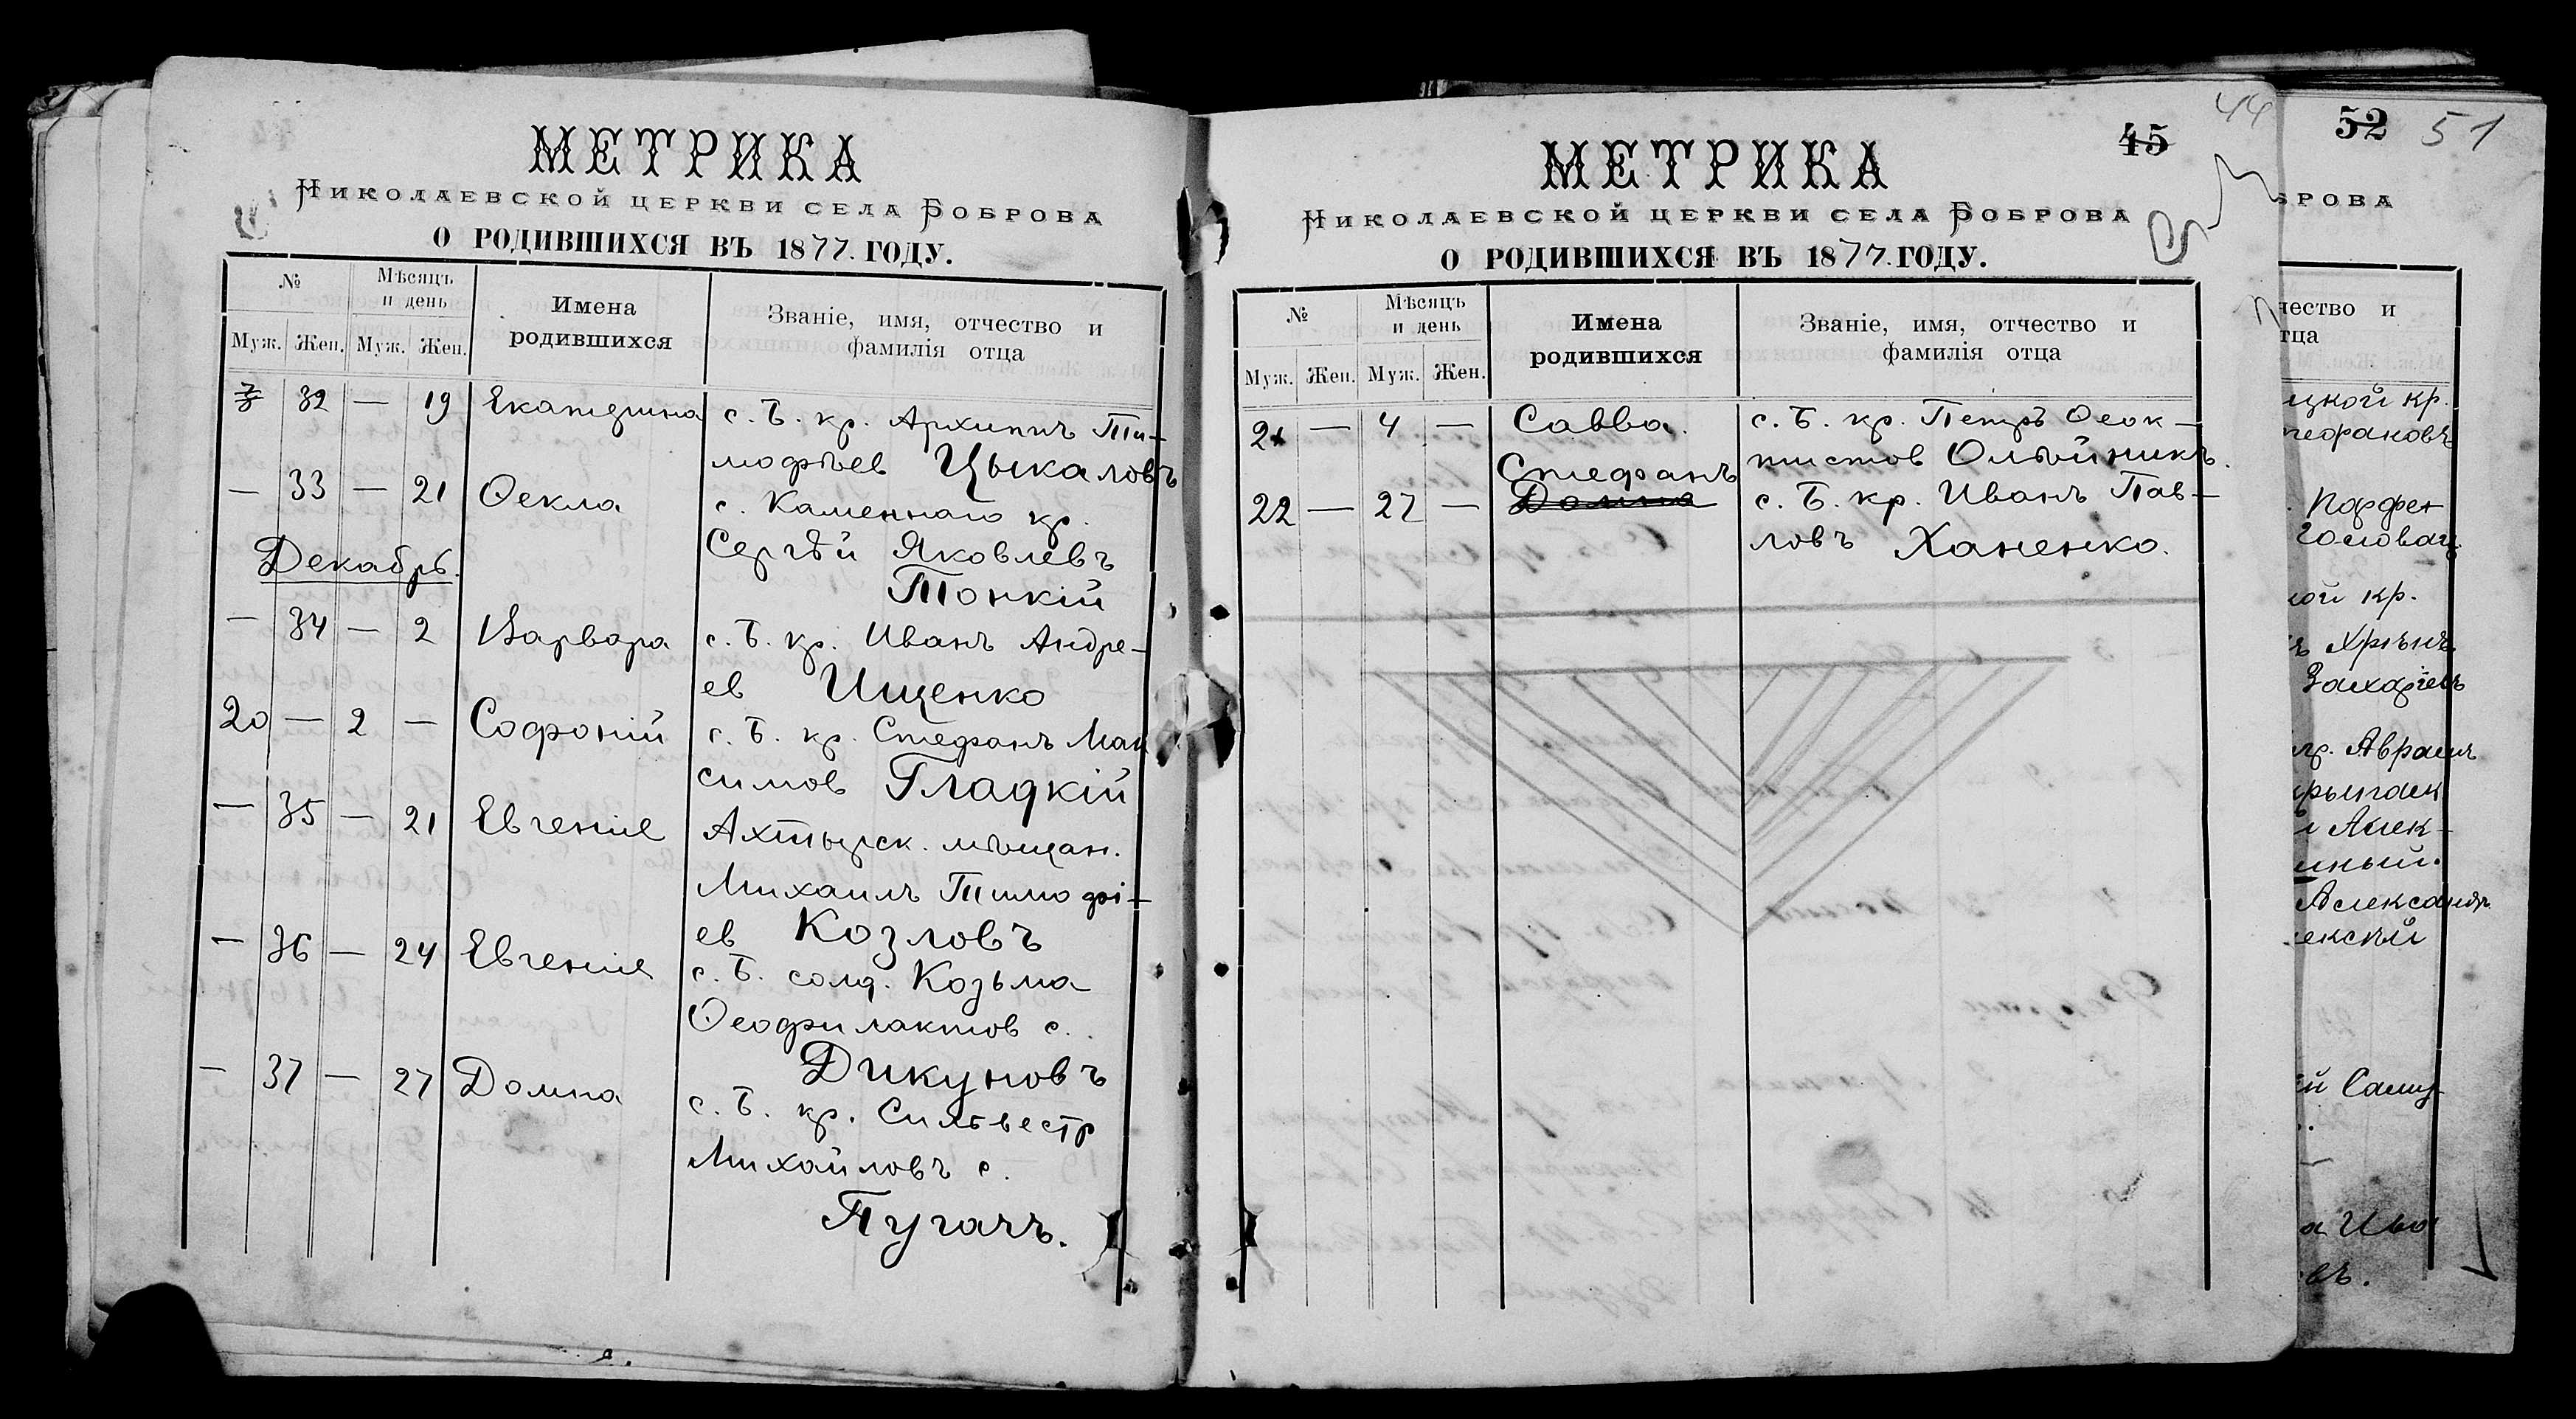 МЕТРИКА
НИКОЛАЕВСКОЙ ЦЕРКВИ СЕЛА БОБРОВА
О РОДИВШИХСЯ ВЪ 1877. ГОДУ.
№ Мѣсяцъ и день Имена родившихся Званіе, имя, отчество и фамилія отца
Муж. Жен. Муж. Жен.
32 — 19 Екатерина с. Б. кр. Архиппъ Ти-
мофѣев Цыкаловъ
— 33 — 21 Ѳекла с. Каменнаго кр.
Сергѣй Яковлевъ
Тонкій
Декабрь.
— 34 — 2 Варвара с. Б. кр. Иванъ Андре-
ев Ищенко
20 — 2 — Софоній с. Б. кр. Стефанъ Мак
симов Гладкій
— 35 — 21 Евгенія Ахтырск. мѣщан.
Михаилъ Тимофі-
ев Козловъ
— 36 — 24 Евгенія с. Б. солд. Козьма
Ѳеофилактов с.
Дикуновъ
— 37 — 27 Домна с. Б. кр. Сильвестр
Михайловъ с.
Пугачъ.
44
45
МЕТРИКА
НИКОЛАЕВСКОЙ ЦЕРКВИ СЕЛА БОБРОВА
О РОДИВШИХСЯ ВЪ 1877. ГОДУ.
№ Мѣсяцъ и день Имена родившихся Званіе, имя, отчество и фамилія отца
Муж. Жен. Муж. Жен.
21 — 4 — Савва. с. Б. кр. Петръ Ѳеок-
тистов Олѣйникъ.
Стефанъ
22 — 27 — Домна с. Б. кр. Иванъ Пав-
ловъ Ханенко.
52 51
БРОВА
чество и
тца
цкой кр.
. Парфен
Головач
ной кр.
ъ Хрѣнъ
Захарьевъ
кр. Аврамъ
и Алек-
Александр
ей Саму
а Ива
въ.